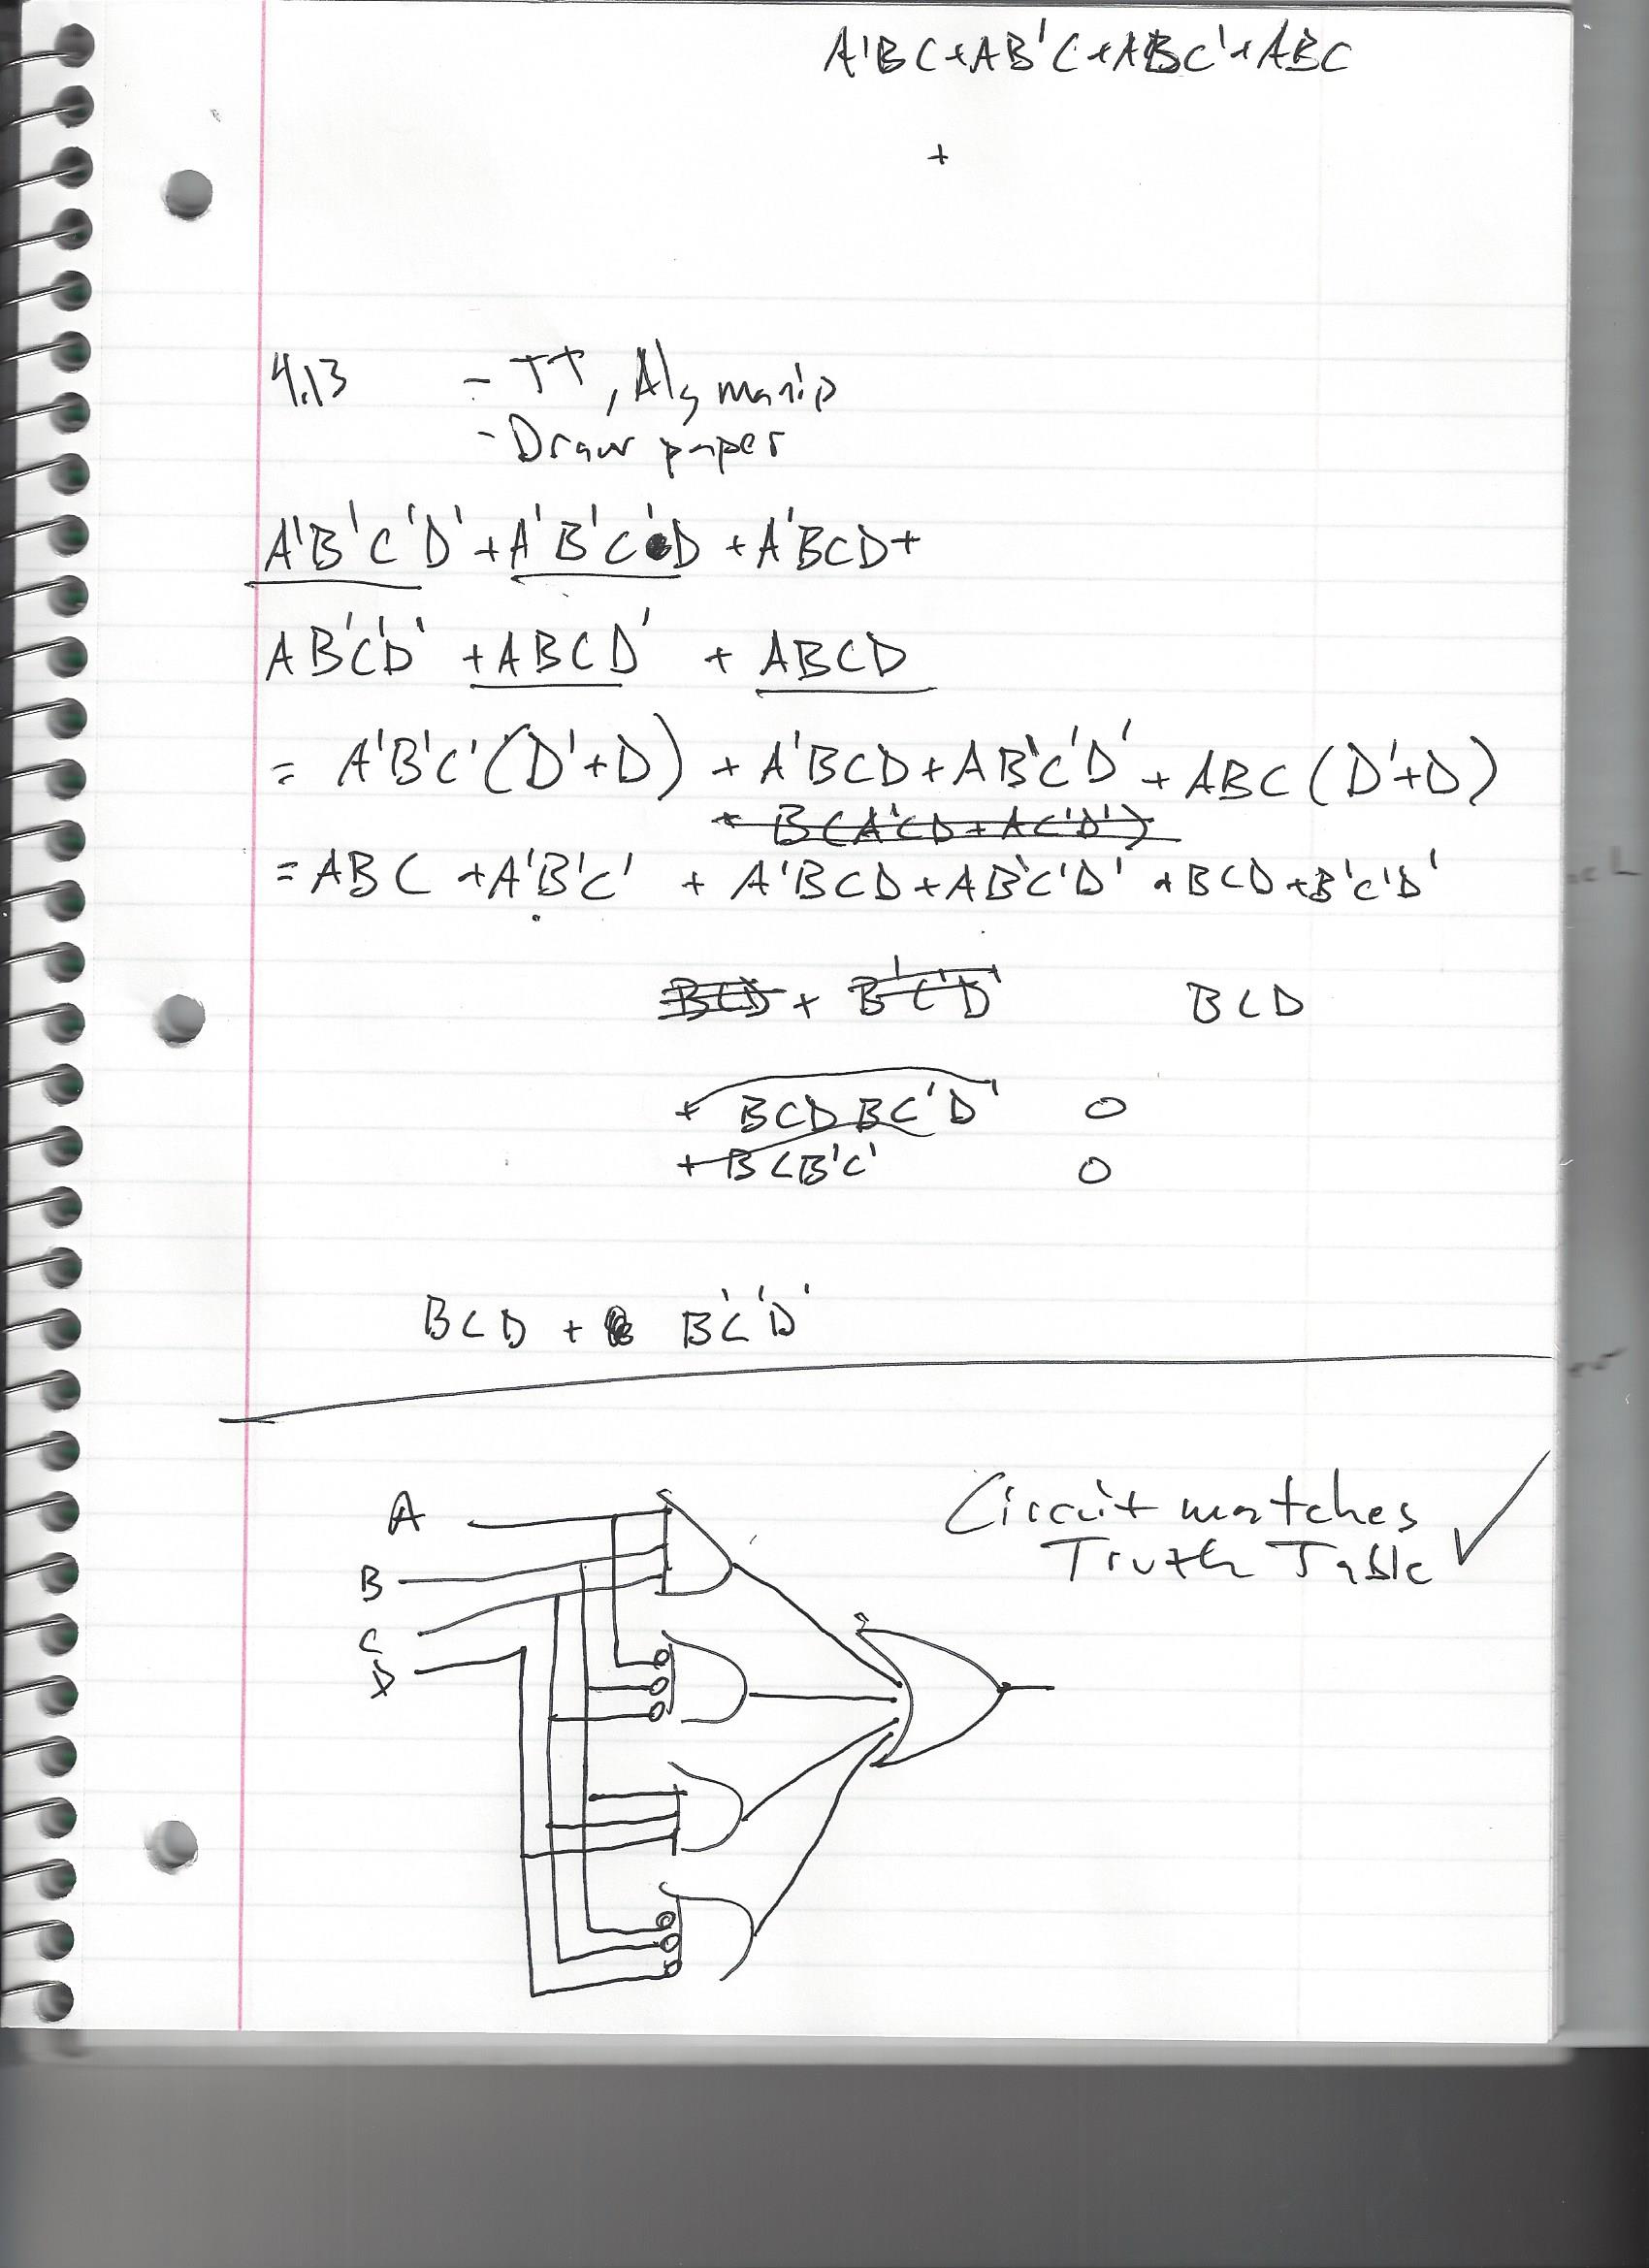 A'BC+AB'C+ABC'+ABC
+
4.13 - TT, Alg manip
- Draw paper
A'B'C'D' + A'B'C'D + A'BCD+
AB'C'D' + ABCD' + ABCD
= A'B'C'(D'+D) + A'BCD + AB'C'D' + ABC(D'+D)
+ B(A'CD + AC'D')
= ABC + A'B'C' + A'BCD + AB'C'D' + BCD + B'C'D'
BCD + B'C'D' BCD
+ BCD BC'D' 0
+ BCB'C' 0
BCD + B'C'D'
A
B
C
D
Circuit matches
Truth Table ✓